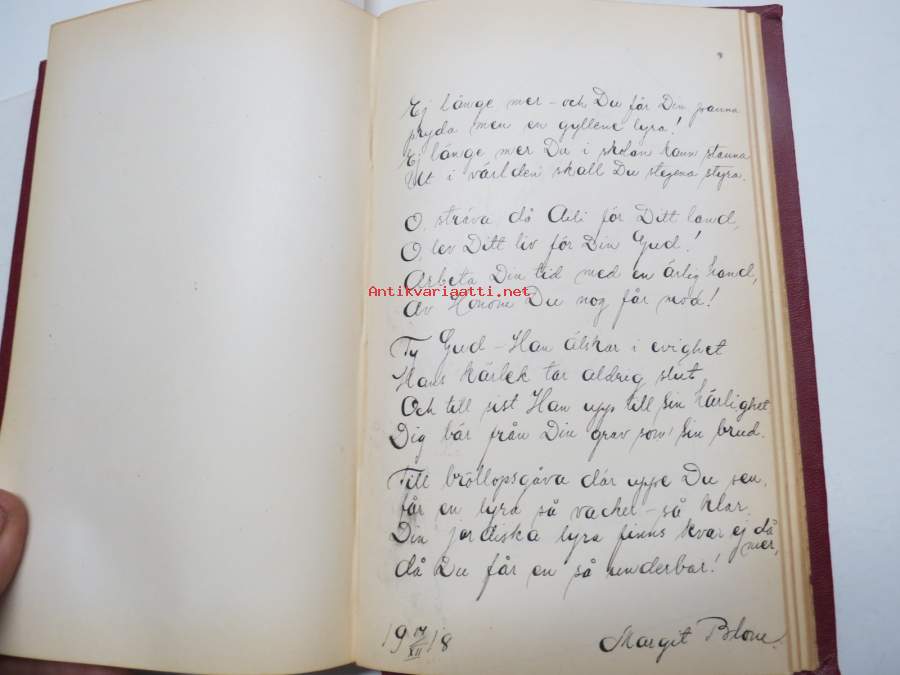 Ej länge mer – och Du får Din panna
pryda men en gyllene lyra!
Ej länge mer Du i skolan kann stanna
Ut i världen skall Du stegena styra.
O, sträva då Aili för Ditt land,
O, lev Ditt liv för Din Gud!
Arbeta Din tid med en ärlig hand,
Antikvariaatti.net
Av Honom Du nog får mod!
Ty Gud – Han älskar i evighet
Hans kärlek tar aldrig slut
Och till sist Han upp till Sin härlighet
Dig bär från Din grav som Sin brud.
Till bröllopsgåva där uppe Du sen,
får en lyra så vacker – så klar.
Din jordiska lyra finns kvar ej då
mer,
då Du får en så underbar!
19 XII 18
Margit